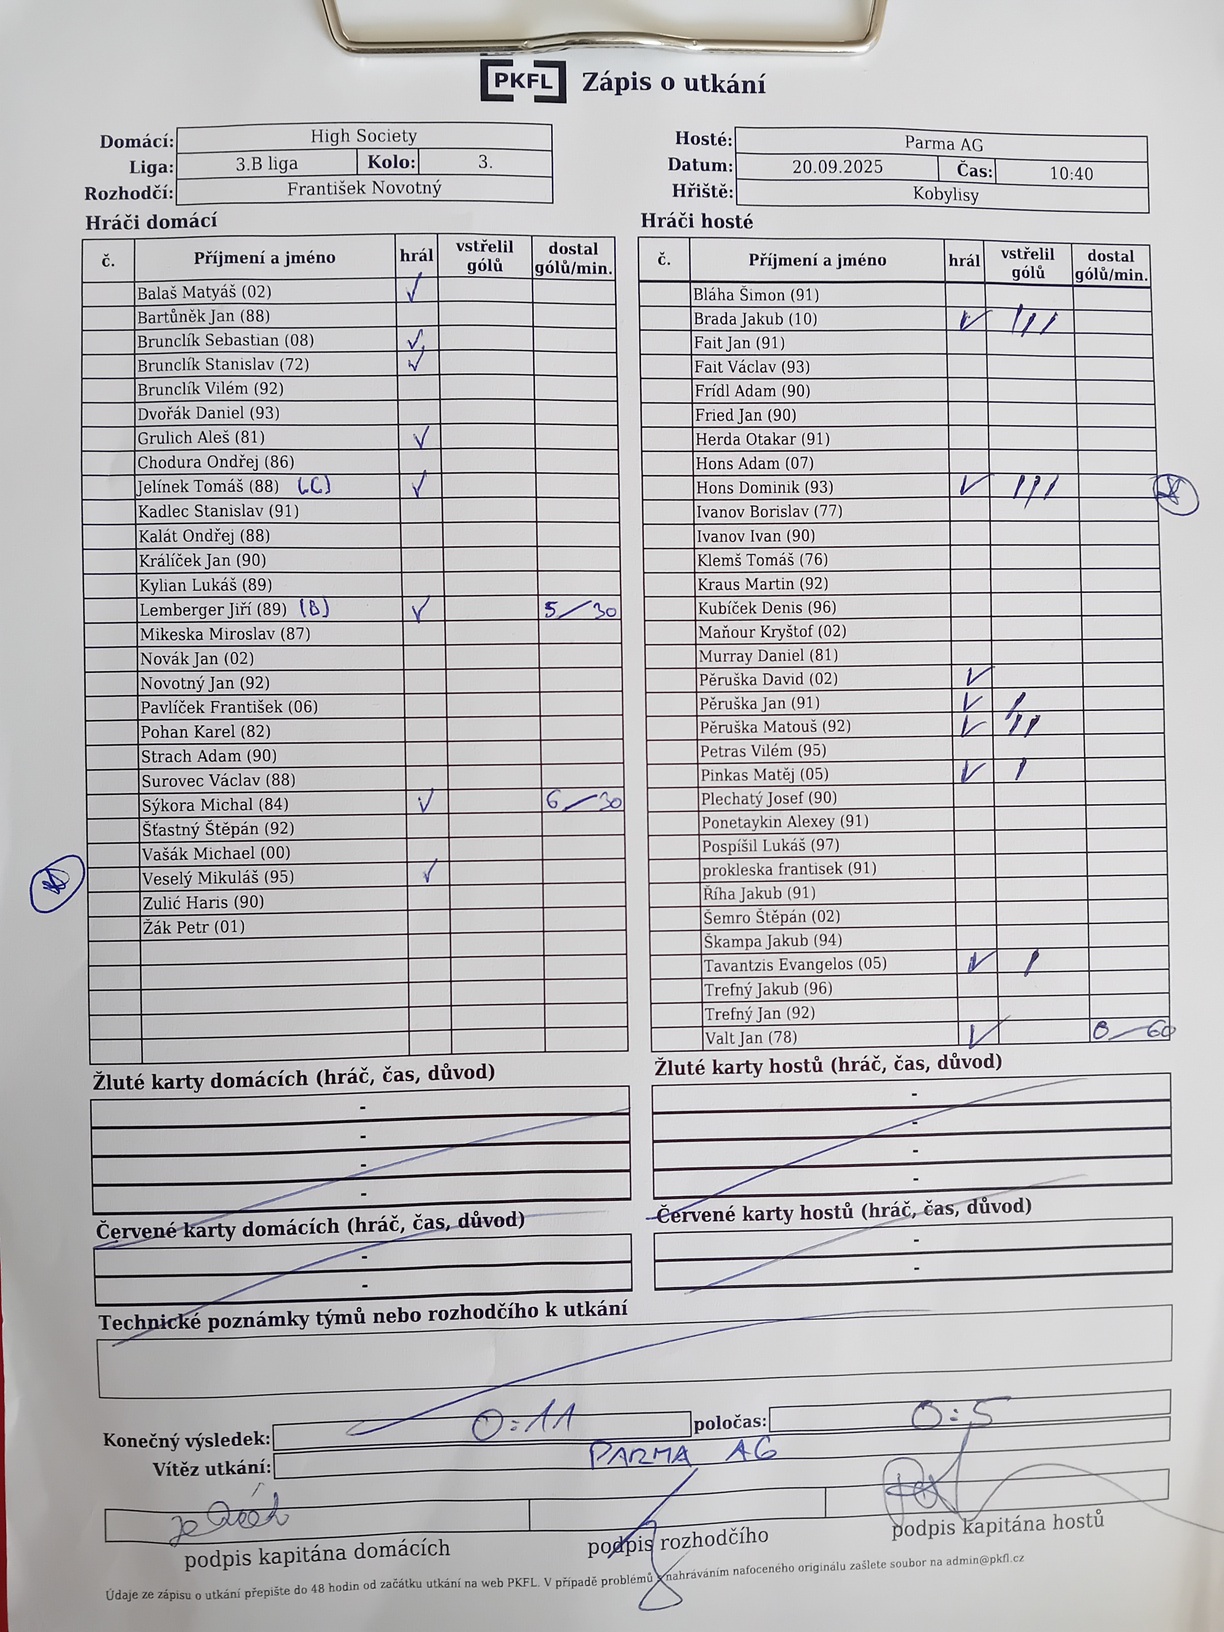 PKFL Zápis o utkání
Domácí: High Society
Liga: 3.B liga Kolo: 3.
Rozhodčí: František Novotný
Hosté: Parma AG
Datum: 20.09.2025 Čas: 10:40
Hřiště: Kobylisy
Hráči domácí
č. Příjmení a jméno hrál vstřelil gólů dostal gólů/min.
Balaš Matyáš (02) ✓
Bartůněk Jan (88)
Brunclík Sebastian (08) ✓
Brunclík Stanislav (72) ✓
Brunclík Vilém (92)
Dvořák Daniel (93)
Grulich Aleš (81) ✓
Chodura Ondřej (86)
Jelínek Tomáš (88) (C) ✓
Kadlec Stanislav (91)
Kalát Ondřej (88)
Králíček Jan (90)
Kylian Lukáš (89)
Lemberger Jiří (89) (B) ✓ 5/30
Mikeska Miroslav (87)
Novák Jan (02)
Novotný Jan (92)
Pavlíček František (06)
Pohan Karel (82)
Strach Adam (90)
Surovec Václav (88)
Sýkora Michal (84) ✓ 6/30
Šťastný Štěpán (92)
Vašák Michael (00)
Veselý Mikuláš (95) ✓
Zulić Haris (90)
Žák Petr (01)
Hráči hosté
č. Příjmení a jméno hrál vstřelil gólů dostal gólů/min.
Bláha Šimon (91)
Brada Jakub (10) ✓ ///
Fait Jan (91)
Fait Václav (93)
Frídl Adam (90)
Fried Jan (90)
Herda Otakar (91)
Hons Adam (07)
Hons Dominik (93) ✓ ///
Ivanov Borislav (77)
Ivanov Ivan (90)
Klemš Tomáš (76)
Kraus Martin (92)
Kubíček Denis (96)
Maňour Kryštof (02)
Murray Daniel (81)
Pěruška David (02) ✓
Pěruška Jan (91) ✓ /
Pěruška Matouš (92) ✓ //
Petras Vilém (95)
Pinkas Matěj (05) ✓ /
Plechatý Josef (90)
Ponetaykin Alexey (91)
Pospíšil Lukáš (97)
prokleska frantisek (91)
Říha Jakub (91)
Šemro Štěpán (02)
Škampa Jakub (94)
Tavantzis Evangelos (05) ✓ /
Trefný Jakub (96)
Trefný Jan (92)
Valt Jan (78) ✓ 0/60
Žluté karty domácích (hráč, čas, důvod)
-
-
-
-
Žluté karty hostů (hráč, čas, důvod)
-
-
-
-
Červené karty domácích (hráč, čas, důvod)
-
-
Červené karty hostů (hráč, čas, důvod)
-
-
Technické poznámky týmů nebo rozhodčího k utkání
Konečný výsledek: 0:11 poločas: 0:5
Vítěz utkání: PARMA AG
podpis kapitána domácích podpis rozhodčího podpis kapitána hostů
Údaje ze zápisu o utkání přepište do 48 hodin od začátku utkání na web PKFL. V případě problémů s nahráváním nafoceného originálu zašlete soubor na admin@pkfl.cz